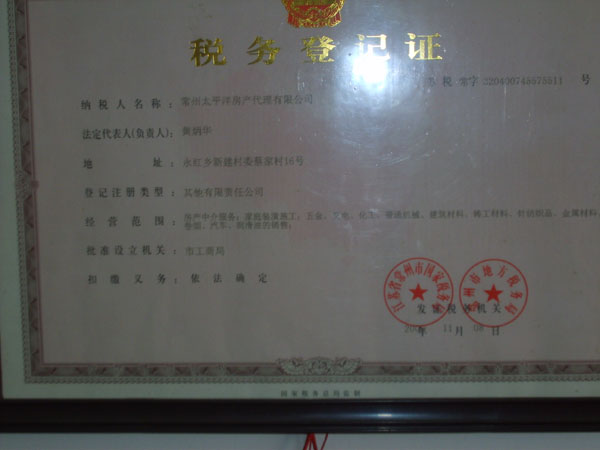 税务登记证
苏 税 常字 320400745575511 号
纳税人名称：常州太平洋房产代理有限公司
法定代表人(负责人)：黄炳华
地 址：永红乡新建村委蔡家村16号
登记注册类型：其他有限责任公司
经营范围：房产中介服务；家庭装潢施工；五金、交电、化工、普通机械、建筑材料、铸工材料、针纺织品、金属材料、
卷烟、汽车、润滑油的销售；
批准设立机关：市工商局
扣缴义务：依法确定
江苏省常州市国家税务局
常州市地方税务局
发证税务机关
年 11 月 08 日
国家税务总局监制